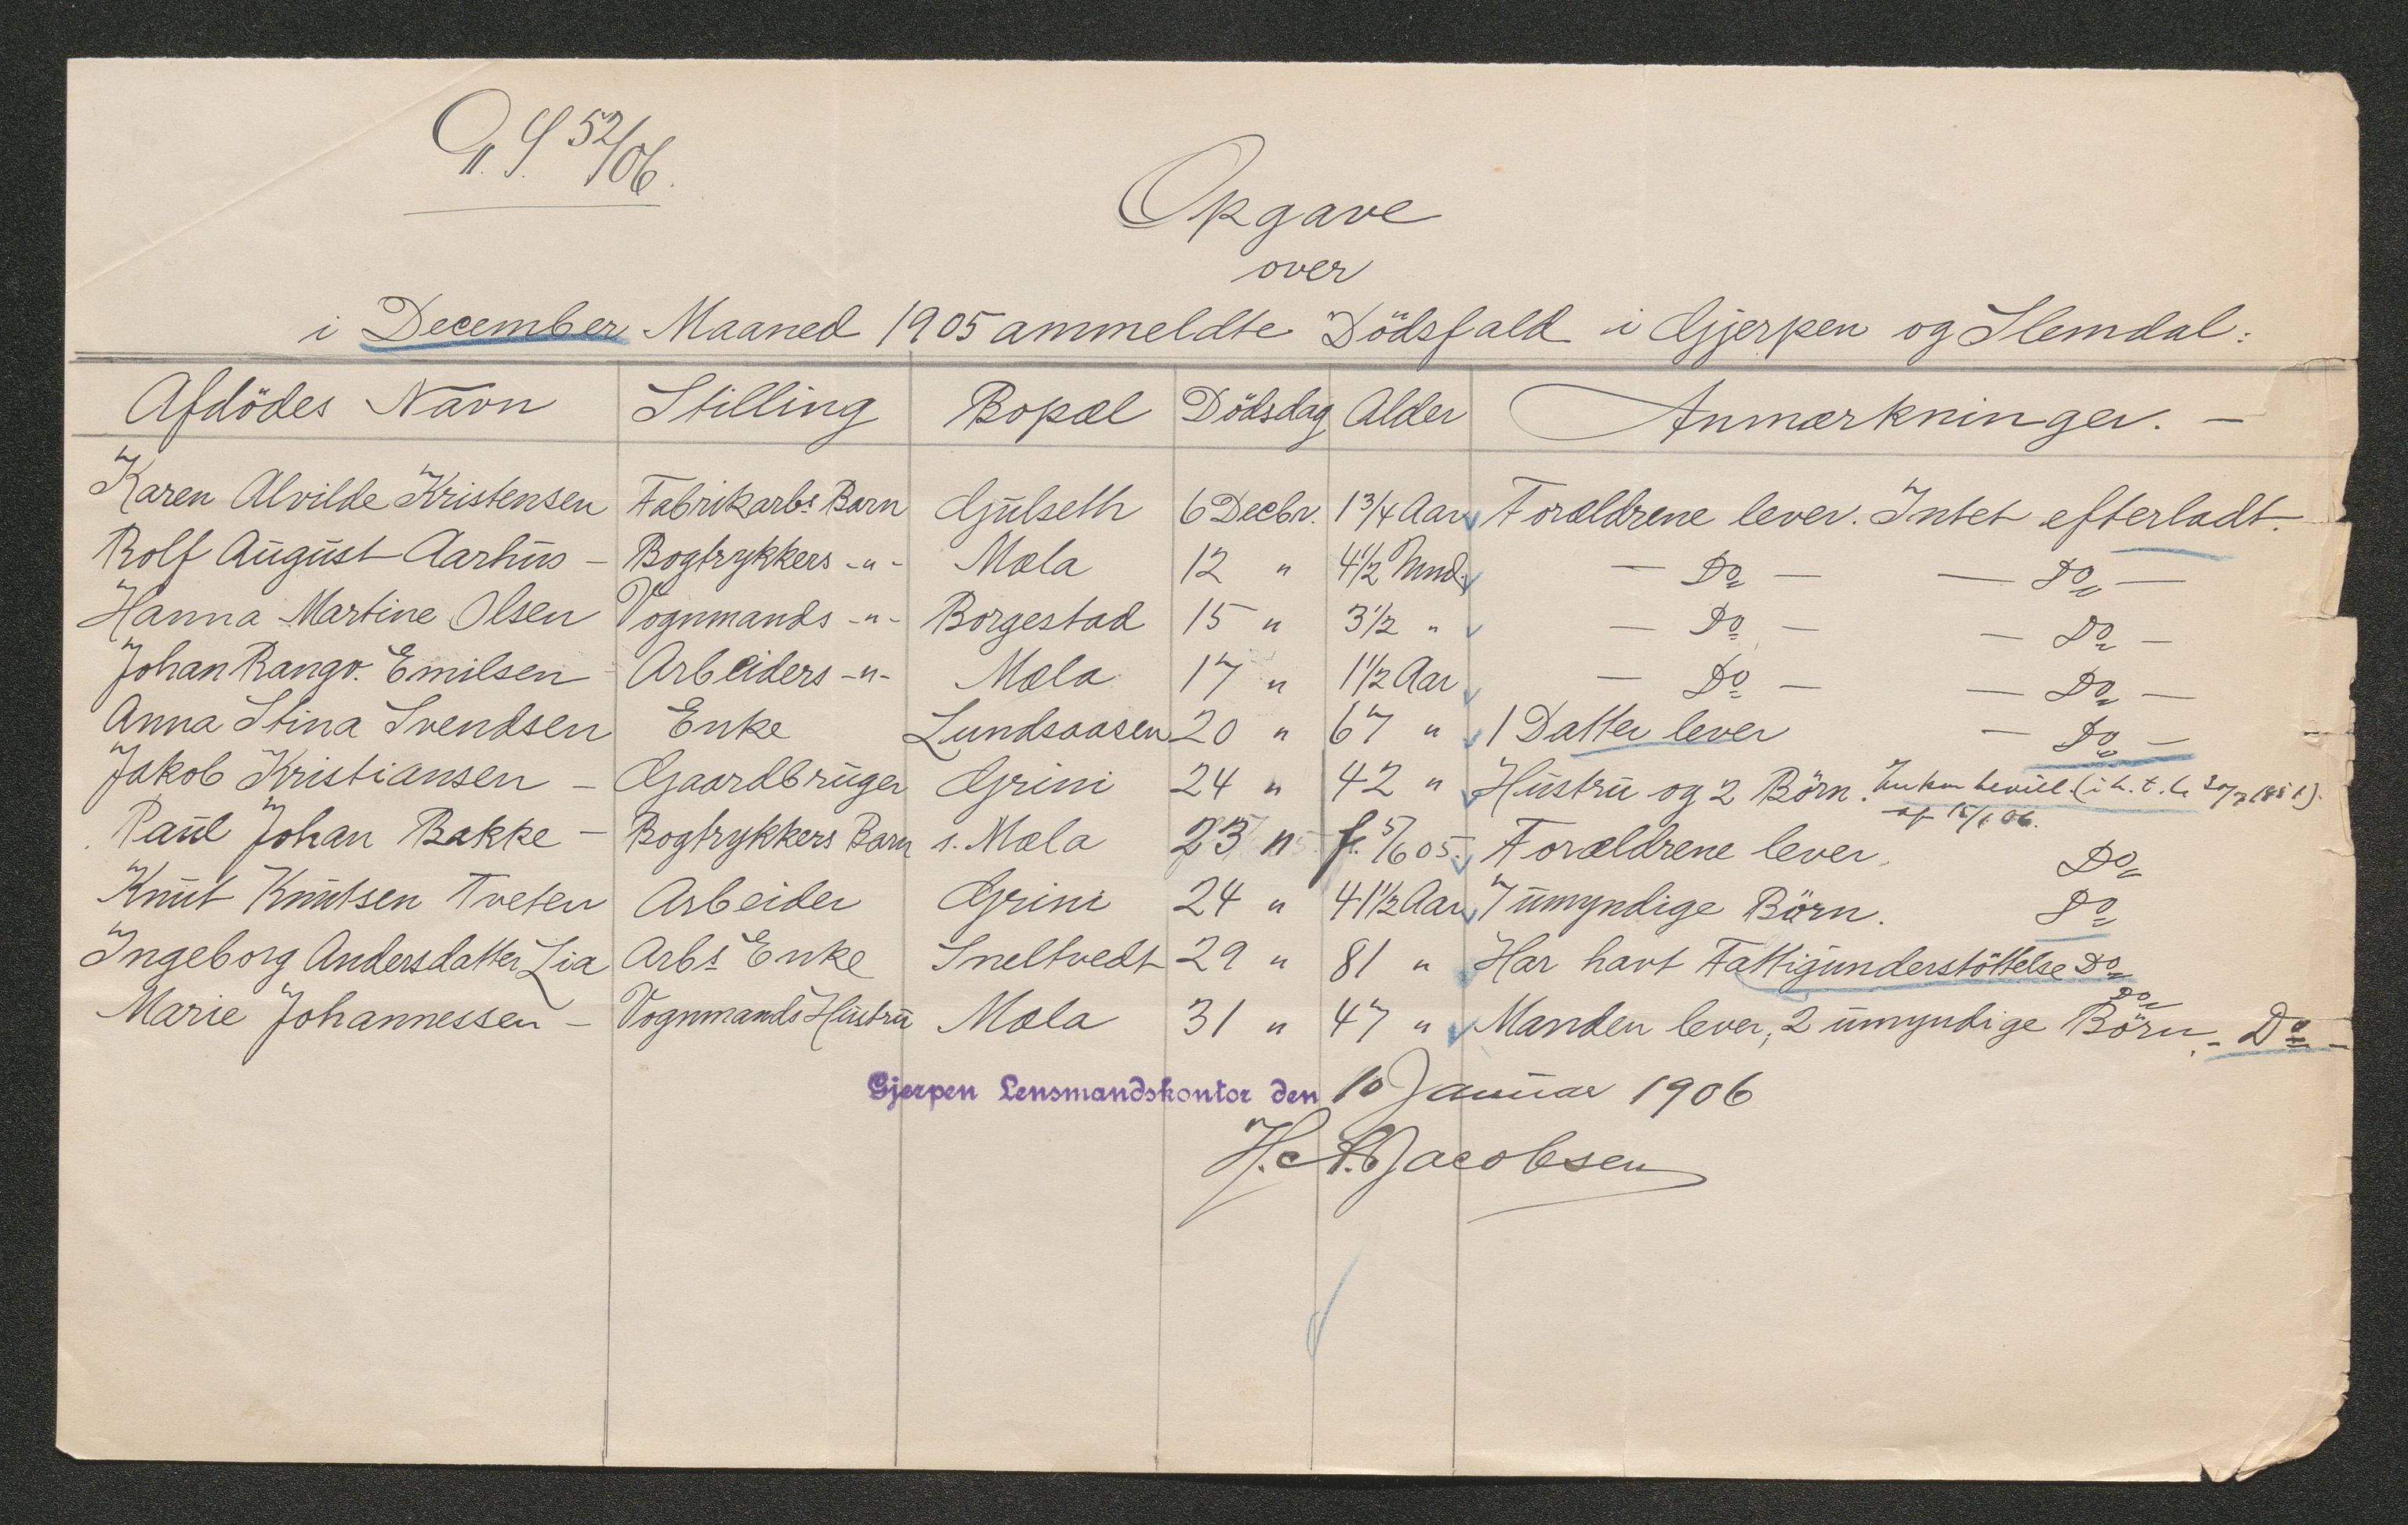 52/06.
Opgave
over
i December Maaned 1905 ammeldte Dödsfald i Gjerpen og Slemdal:
Afdödes Navn Stilling Bopæl Dödsdag Alder Anmærkninger. —
Karen Alvilde Kristensen Fabrikarbs. Barn Gjulseth 6 Decbr. 1 3/4 Aar Forældrene lever. Intet efterladt.
Rolf August Aarhus — Bogtrykkers -"- Mæla 12 " 4 1/2 Mnd. — Do — — Do —
Hanna Martine Olsen Vognmands -"- Borgestad 15 " 3 1/2 " — Do — — Do —
Johan Rangv. Emilsen Arbeiders -"- Mæla 17 " 1 1/2 Aar — Do — — Do —
Anna Stina Svendsen Enke Lundsaasen 20 " 67 " 1 Datter lever — Do —
Jakob Kristiansen — Gaardbruger Grini 24 " 42 " Hustru og 2 Börn.
af 15/1 06.
Paul Johan Bakke — Bogtrykkers Barn s. Mæla 23 " f. 5/6 05. Forældrene lever. Do
Knut Knutsen Tveten Arbeider Grini 24 " 41 1/2 Aar 7 umyndige Börn. Do
Ingeborg Andersdatter Lia Arbs Enke Sneltvedt 29 " 81 " Har havt Fattigunderstöttelse Do
Do
Marie Johannessen — Vognmands Hustru Mæla 31 " 47 " Manden lever, 2 umyndige Börn. - Do -
Gjerpen Lensmandskontor den 10 Januar 1906
H. A. Jacobsen